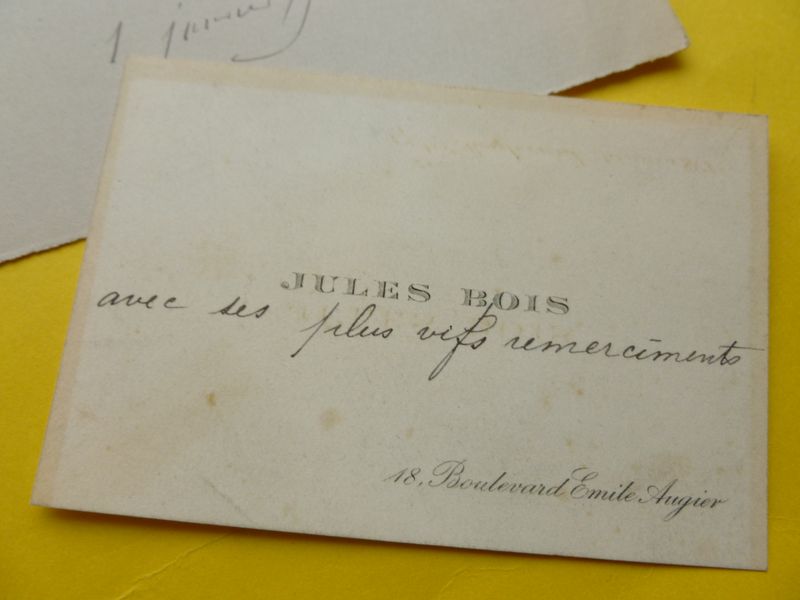 JULES BOIS
avec ses plus vifs remerciments
18, Boulevard Emile Augier